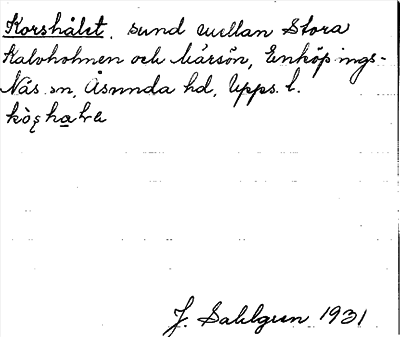 Korshålet, sund mellan Stora
Kalvholmen och Vårsön, Enköpings-
Näs sn, Åsunda hd, Upps. l.
J. Sahlgren 1931